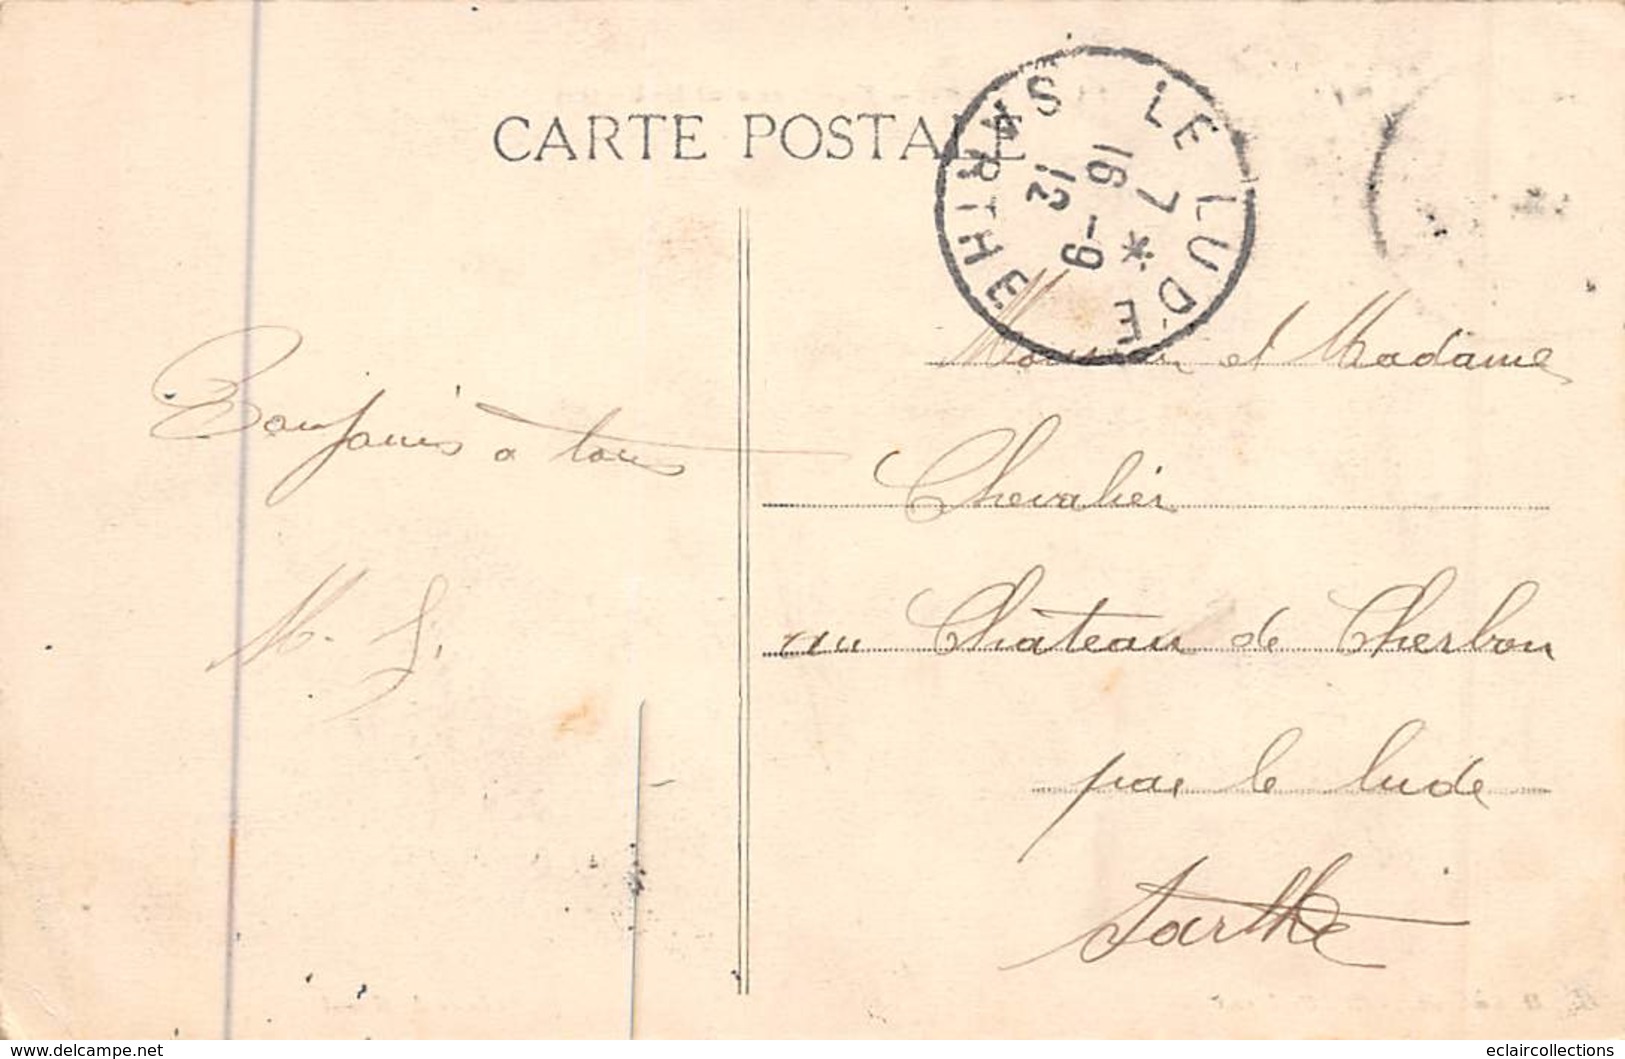 CARTE POSTALE
LE LUDE
7 *
16 -9
12
SARTHE
Monsieur et Madame
Bonjours a tous
Chevalier
M. J.
au Château de Cherbon
par le Lude
Sarthe
www.delcampe.net
eclaircollections